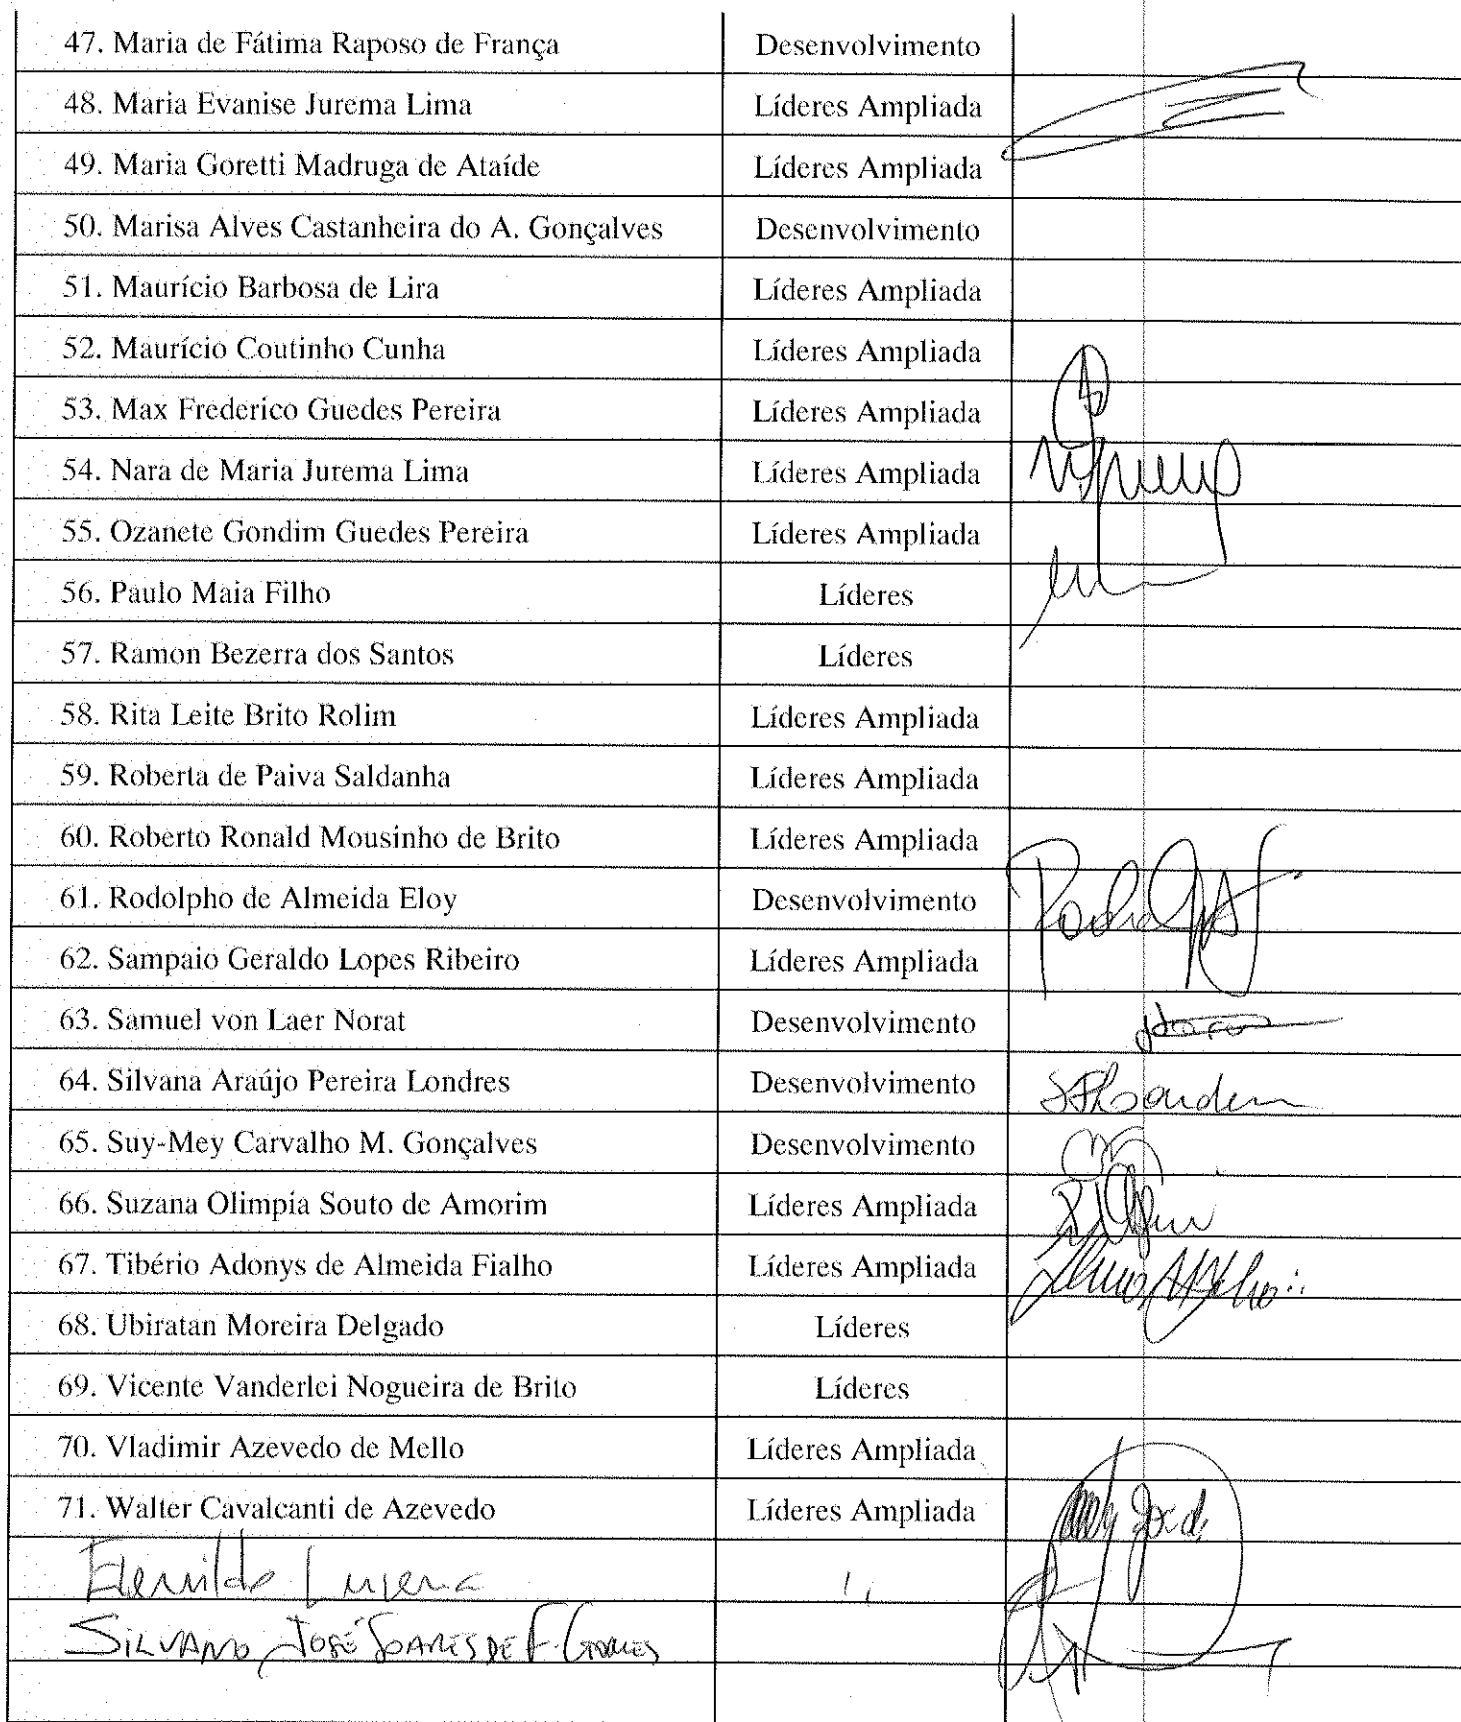 47. Maria de Fátima Raposo de França Desenvolvimento
48. Maria Evanise Jurema Lima Líderes Ampliada
49. Maria Goretti Madruga de Ataíde Líderes Ampliada
50. Marisa Alves Castanheira do A. Gonçalves Desenvolvimento
51. Maurício Barbosa de Lira Líderes Ampliada
52. Maurício Coutinho Cunha Líderes Ampliada
53. Max Frederico Guedes Pereira Líderes Ampliada
54. Nara de Maria Jurema Lima Líderes Ampliada
55. Ozanete Gondim Guedes Pereira Líderes Ampliada
56. Paulo Maia Filho Líderes
57. Ramon Bezerra dos Santos Líderes
58. Rita Leite Brito Rolim Líderes Ampliada
59. Roberta de Paiva Saldanha Líderes Ampliada
60. Roberto Ronald Mousinho de Brito Líderes Ampliada
61. Rodolpho de Almeida Eloy Desenvolvimento
62. Sampaio Geraldo Lopes Ribeiro Líderes Ampliada
63. Samuel von Laer Norat Desenvolvimento
64. Silvana Araújo Pereira Londres Desenvolvimento
65. Suy-Mey Carvalho M. Gonçalves Desenvolvimento
66. Suzana Olimpia Souto de Amorim Líderes Ampliada
67. Tibério Adonys de Almeida Fialho Líderes Ampliada
68. Ubiratan Moreira Delgado Líderes
69. Vicente Vanderlei Nogueira de Brito Líderes
70. Vladimir Azevedo de Mello Líderes Ampliada
71. Walter Cavalcanti de Azevedo Líderes Ampliada
Lucena
SILVANO JOSÉ SOARES DE F.